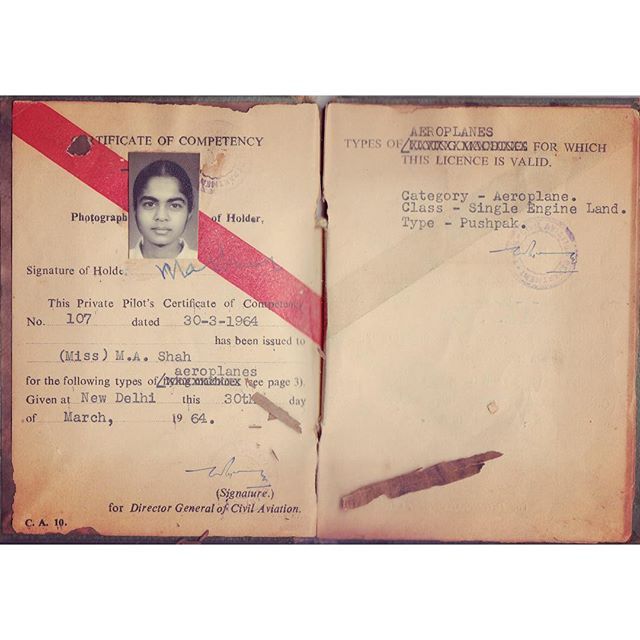 CERTIFICATE OF COMPETENCY
Photograph of Holder,
Signature of Holder
This Private Pilot's Certificate of Competency
No. 107 dated 30-3-1964
has been issued to
(Miss) M.A. Shah
aeroplanes
for the following types of (see page 3).
Given at New Delhi this 30th day
of March, 1964.
(Signature.)
for Director General of Civil Aviation.
C. A. 10.
AEROPLANES
TYPES OF FLYING MACHINES FOR WHICH
THIS LICENCE IS VALID.
Category - Aeroplane.
Class - Single Engine Land.
Type - Pushpak.